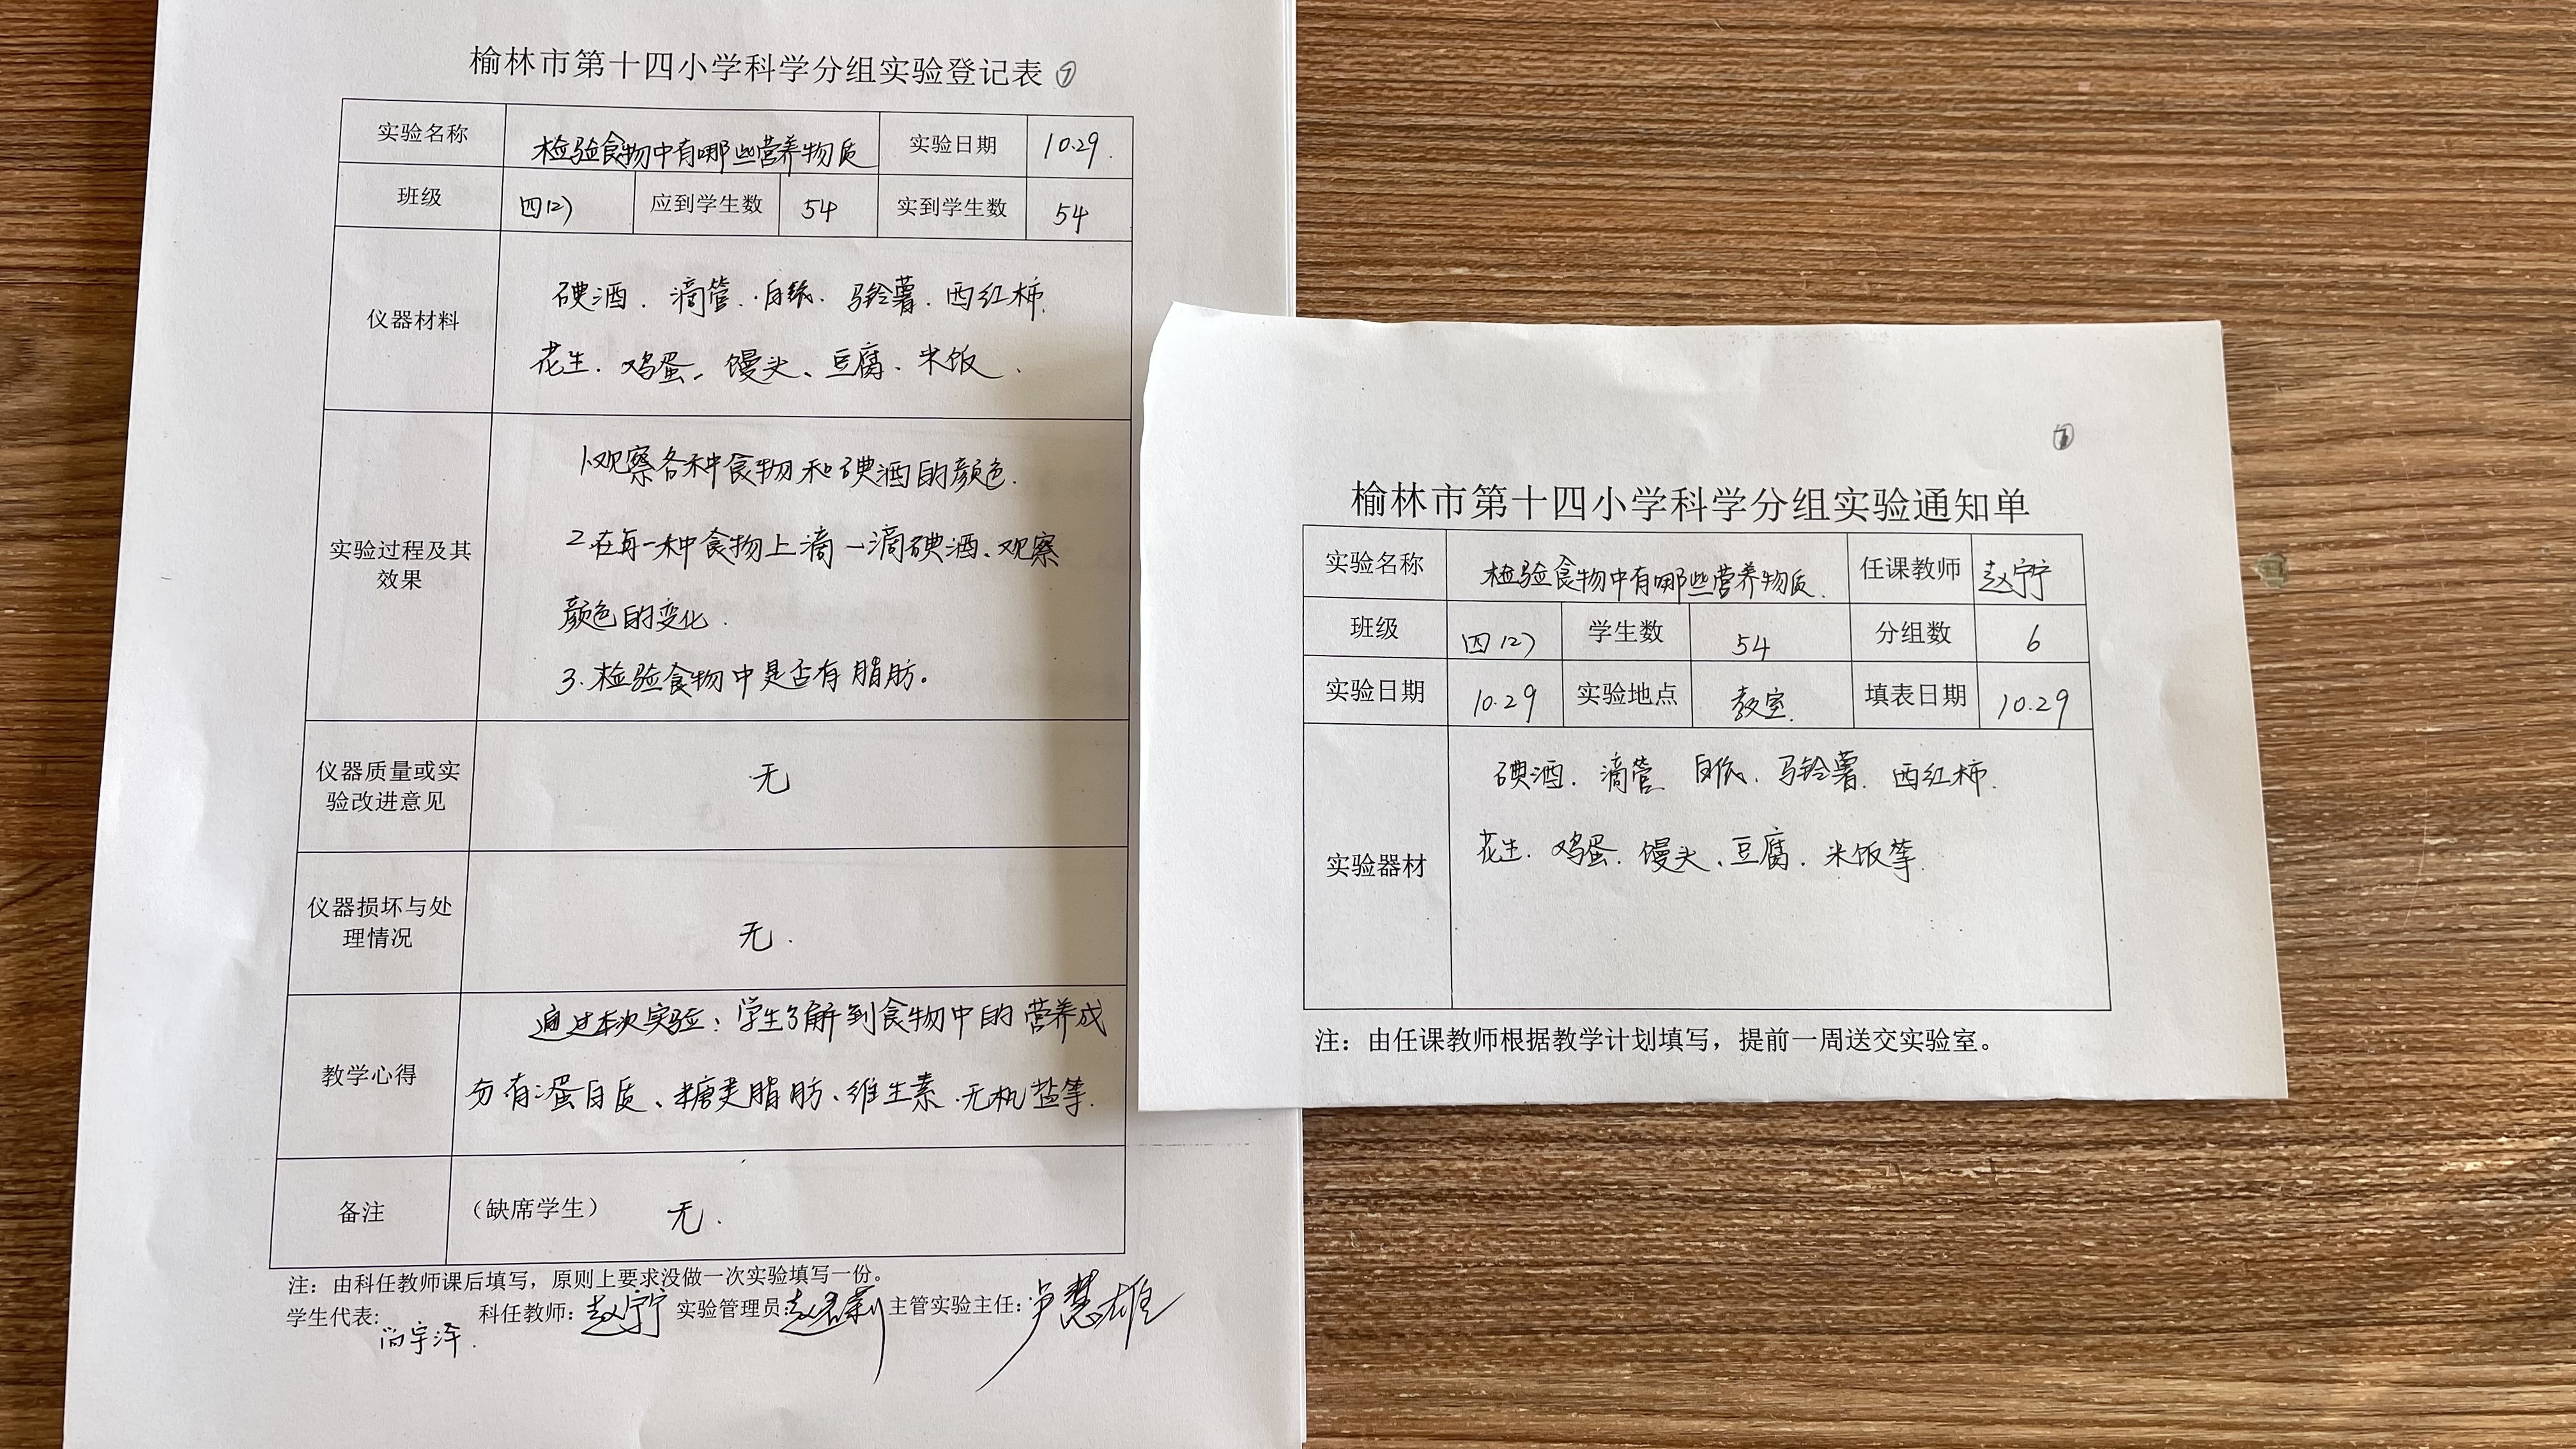 榆林市第十四小学科学分组实验登记表 ⑦
实验名称 检验食物中有哪些营养物质 实验日期 10.29.
班级 四(2) 应到学生数 54 实到学生数 54
仪器材料
碘酒. 滴管. 白纸. 马铃薯. 西红柿.
花生. 鸡蛋、馒头、豆腐、米饭.
实验过程及其
效果
1.观察各种食物和碘酒的颜色.
2.在每一种食物上滴一滴碘酒、观察
颜色的变化.
3.检验食物中是否有脂肪。
仪器质量或实
验改进意见
无
仪器损坏与处
理情况
无.
教学心得
通过本次实验:学生了解到食物中的营养成
分有:蛋白质、糖类脂肪、维生素.无机盐等.
备注 (缺席学生) 无.
注：由科任教师课后填写，原则上要求没做一次实验填写一份。
学生代表: 尚宇泽. 科任教师: 赵宁 实验管理员: 主管实验主任: 卢慧雄
榆林市第十四小学科学分组实验通知单
实验名称 检验食物中有哪些营养物质. 任课教师 赵宁
班级 四(2) 学生数 54 分组数 6
实验日期 10.29 实验地点 教室. 填表日期 10.29
实验器材
碘酒. 滴管 白纸. 马铃薯. 西红柿.
花生. 鸡蛋. 馒头、豆腐. 米饭等.
注：由任课教师根据教学计划填写，提前一周送交实验室。